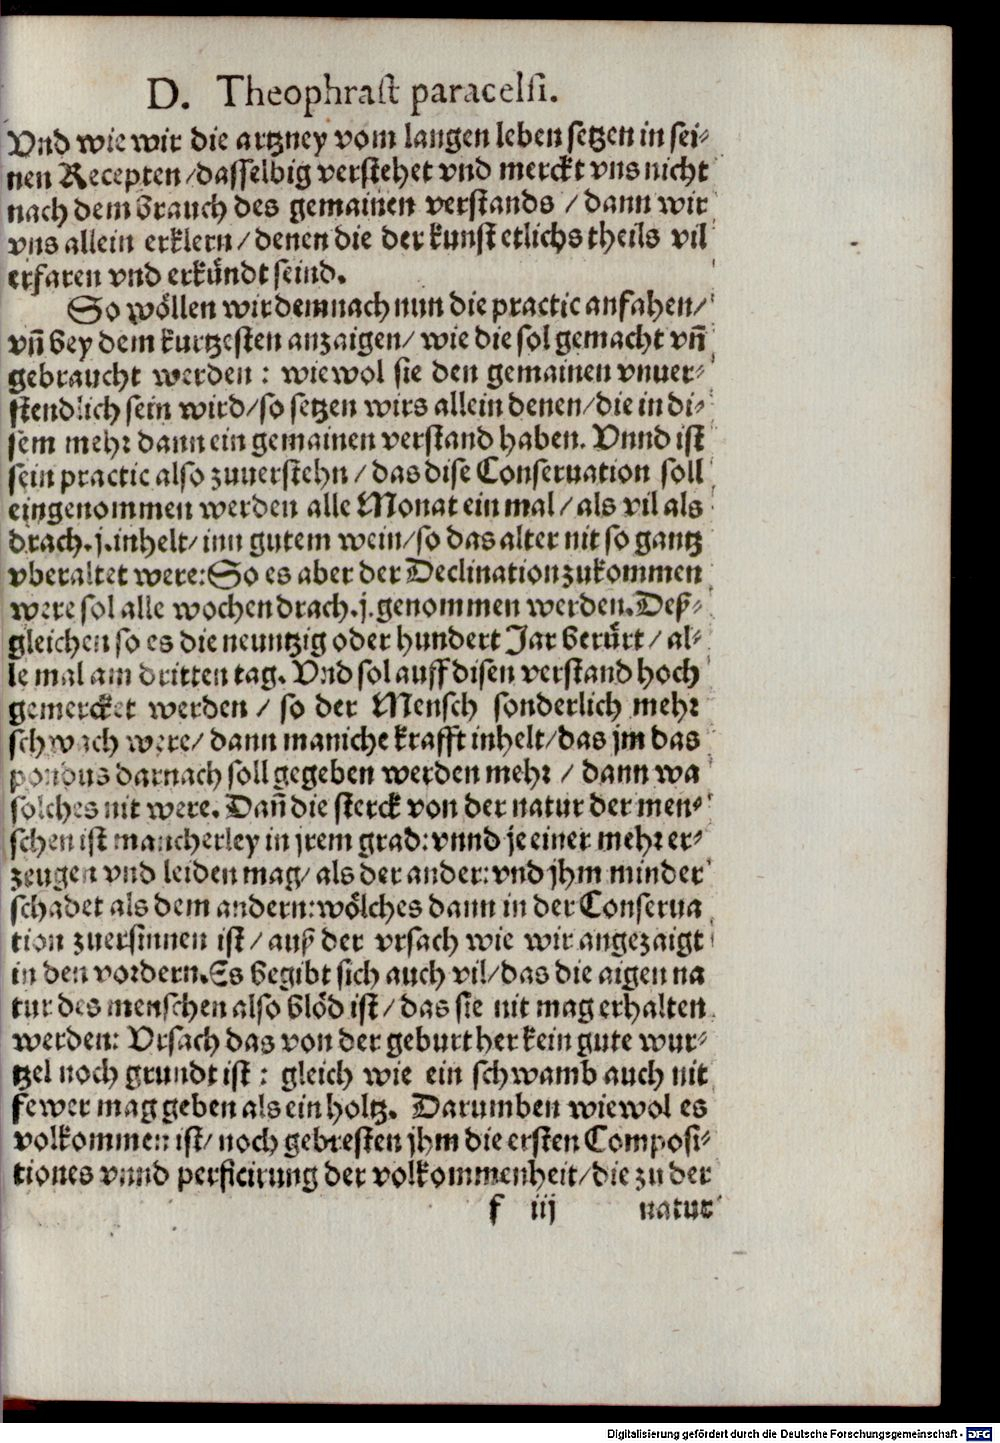 D. Theophrast paracelsi.
Vnd wie wir die artzney vom langen leben setzen in sei⸗
nen Recepten/dasselbig verstehet vnd merckt vns nicht
nach dem brauch des gemainen verstands / dann wir
vns allein erklern/denen die der kunst etlichs theils vil
erfaren vnd erkündt seind.
So wöllen wir demnach nun die practic anfahen/
vñ bey dem kurtzesten anzaigen/ wie die sol gemacht vñ
gebraucht werden : wiewol sie den gemainen vnuer⸗
stendlich sein wird/so setzen wirs allein denen/die in di⸗
sem mehr dann ein gemainen verstand haben. Vnnd ist
sein practic also zuuerstehn / das dise Conseruation soll
eingenommen werden alle Monat ein mal/ als vil als
drach.j.inhelt/inn gutem wein/so das alter nit so gantz
vberaltet were:So es aber der Declination zukommen
were sol alle wochen drach.j.genommen werden.Deß⸗
gleichen so es die neuntzig oder hundert Jar berürt/ al⸗
le mal am dritten tag. Vnd sol auff disen verstand hoch
gemercket werden / so der Mensch sonderlich mehr
schwach were/ dann maniche krafft inhelt/das jm das
pondus darnach soll gegeben werden mehr / dann wa
solches nit were. Dañ die sterck von der natur der men⸗
schen ist mancherley in jrem grad: vnnd je einer mehr er⸗
zeugen vnd leiden mag/ als der ander: vnd jhm minder
schadet als dem andern:wölches dann in der Conserua
tion zuersinnen ist/ auß der vrsach wie wir angezaigt
in den vordern.Es begibt sich auch vil/das die aigen na
tur des menschen also blöd ist/das sie nit mag erhalten
werden: Vrsach das von der geburt her kein gute wur⸗
tzel noch grundt ist : gleich wie ein schwamb auch nit
fewer mag geben als ein holtz. Darumben wiewol es
volkommen ist/ noch gebresten jhm die ersten Composi⸗
tiones vnnd perficirung der volkommenheit/die zu der
f iij natur
Digitalisierung gefördert durch die Deutsche Forschungsgemeinschaft - DFG